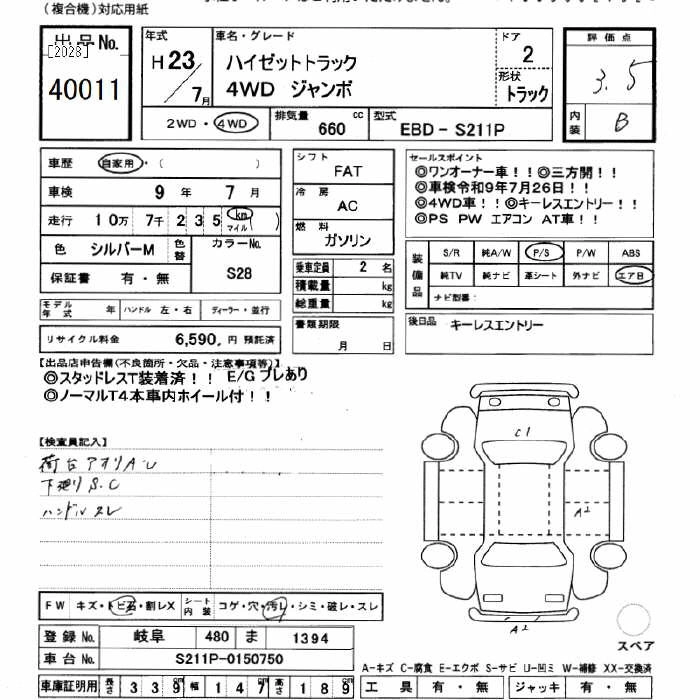 (複合機)対応用紙
出品No.
[2028]
40011
年式
H 23 / 7月
車名・グレード
ハイゼットトラック
4WD ジャンボ
ドア
2
形状
トラック
評価点
3.5
内装
B
2WD・4WD
排気量
660 cc
型式
EBD - S211P
車歴 自家用・( )
車検 9年 7月
走行 10万 7千 235 km マイル ( )
色 シルバーM 色替
カラーNo.
S28
保証書 有・無
シフト
FAT
冷房
AC
燃料
ガソリン
乗車定員 2 名
積載量 kg
総重量 kg
書類期限
月 日
セールスポイント
◎ワンオーナー車!!◎三方開!!
◎車検令和9年7月26日!!
◎4WD車!!◎キーレスエントリー!!
◎PS PW エアコン AT車!!
装備品
S/R 純A/W P/S P/W ABS
純TV 純ナビ 革シート 外ナビ エアB
ナビ型番:
モデル年式 年 ハンドル 左・右 ディーラー・並行
リサイクル料金 6,590, 円 預託済
後日品 キーレスエントリー
【出品店申告欄(不良箇所・欠品・注意事項等)】
◎スタッドレスT装着済!! E/G ブレあり
◎ノーマルT4本車内ホイール付!!
【検査員記入】
荷台アオリA・U
下廻りS.C
ハンドルスレ
C1
A2
A2
FW キズ・トビ石・割レX シート内装 コゲ・穴・汚レ・シミ・破レ・スレ
登録No. 岐阜 480 ま 1394
車台No. S211P-0150750
スペア
A-キズ C-腐食 E-エクボ S-サビ U-凹ミ W-補修 XX-交換済
車庫証明用 長さ 339 cm 幅 147 cm 高さ 189 cm
工具 有・無 ジャッキ 有・無